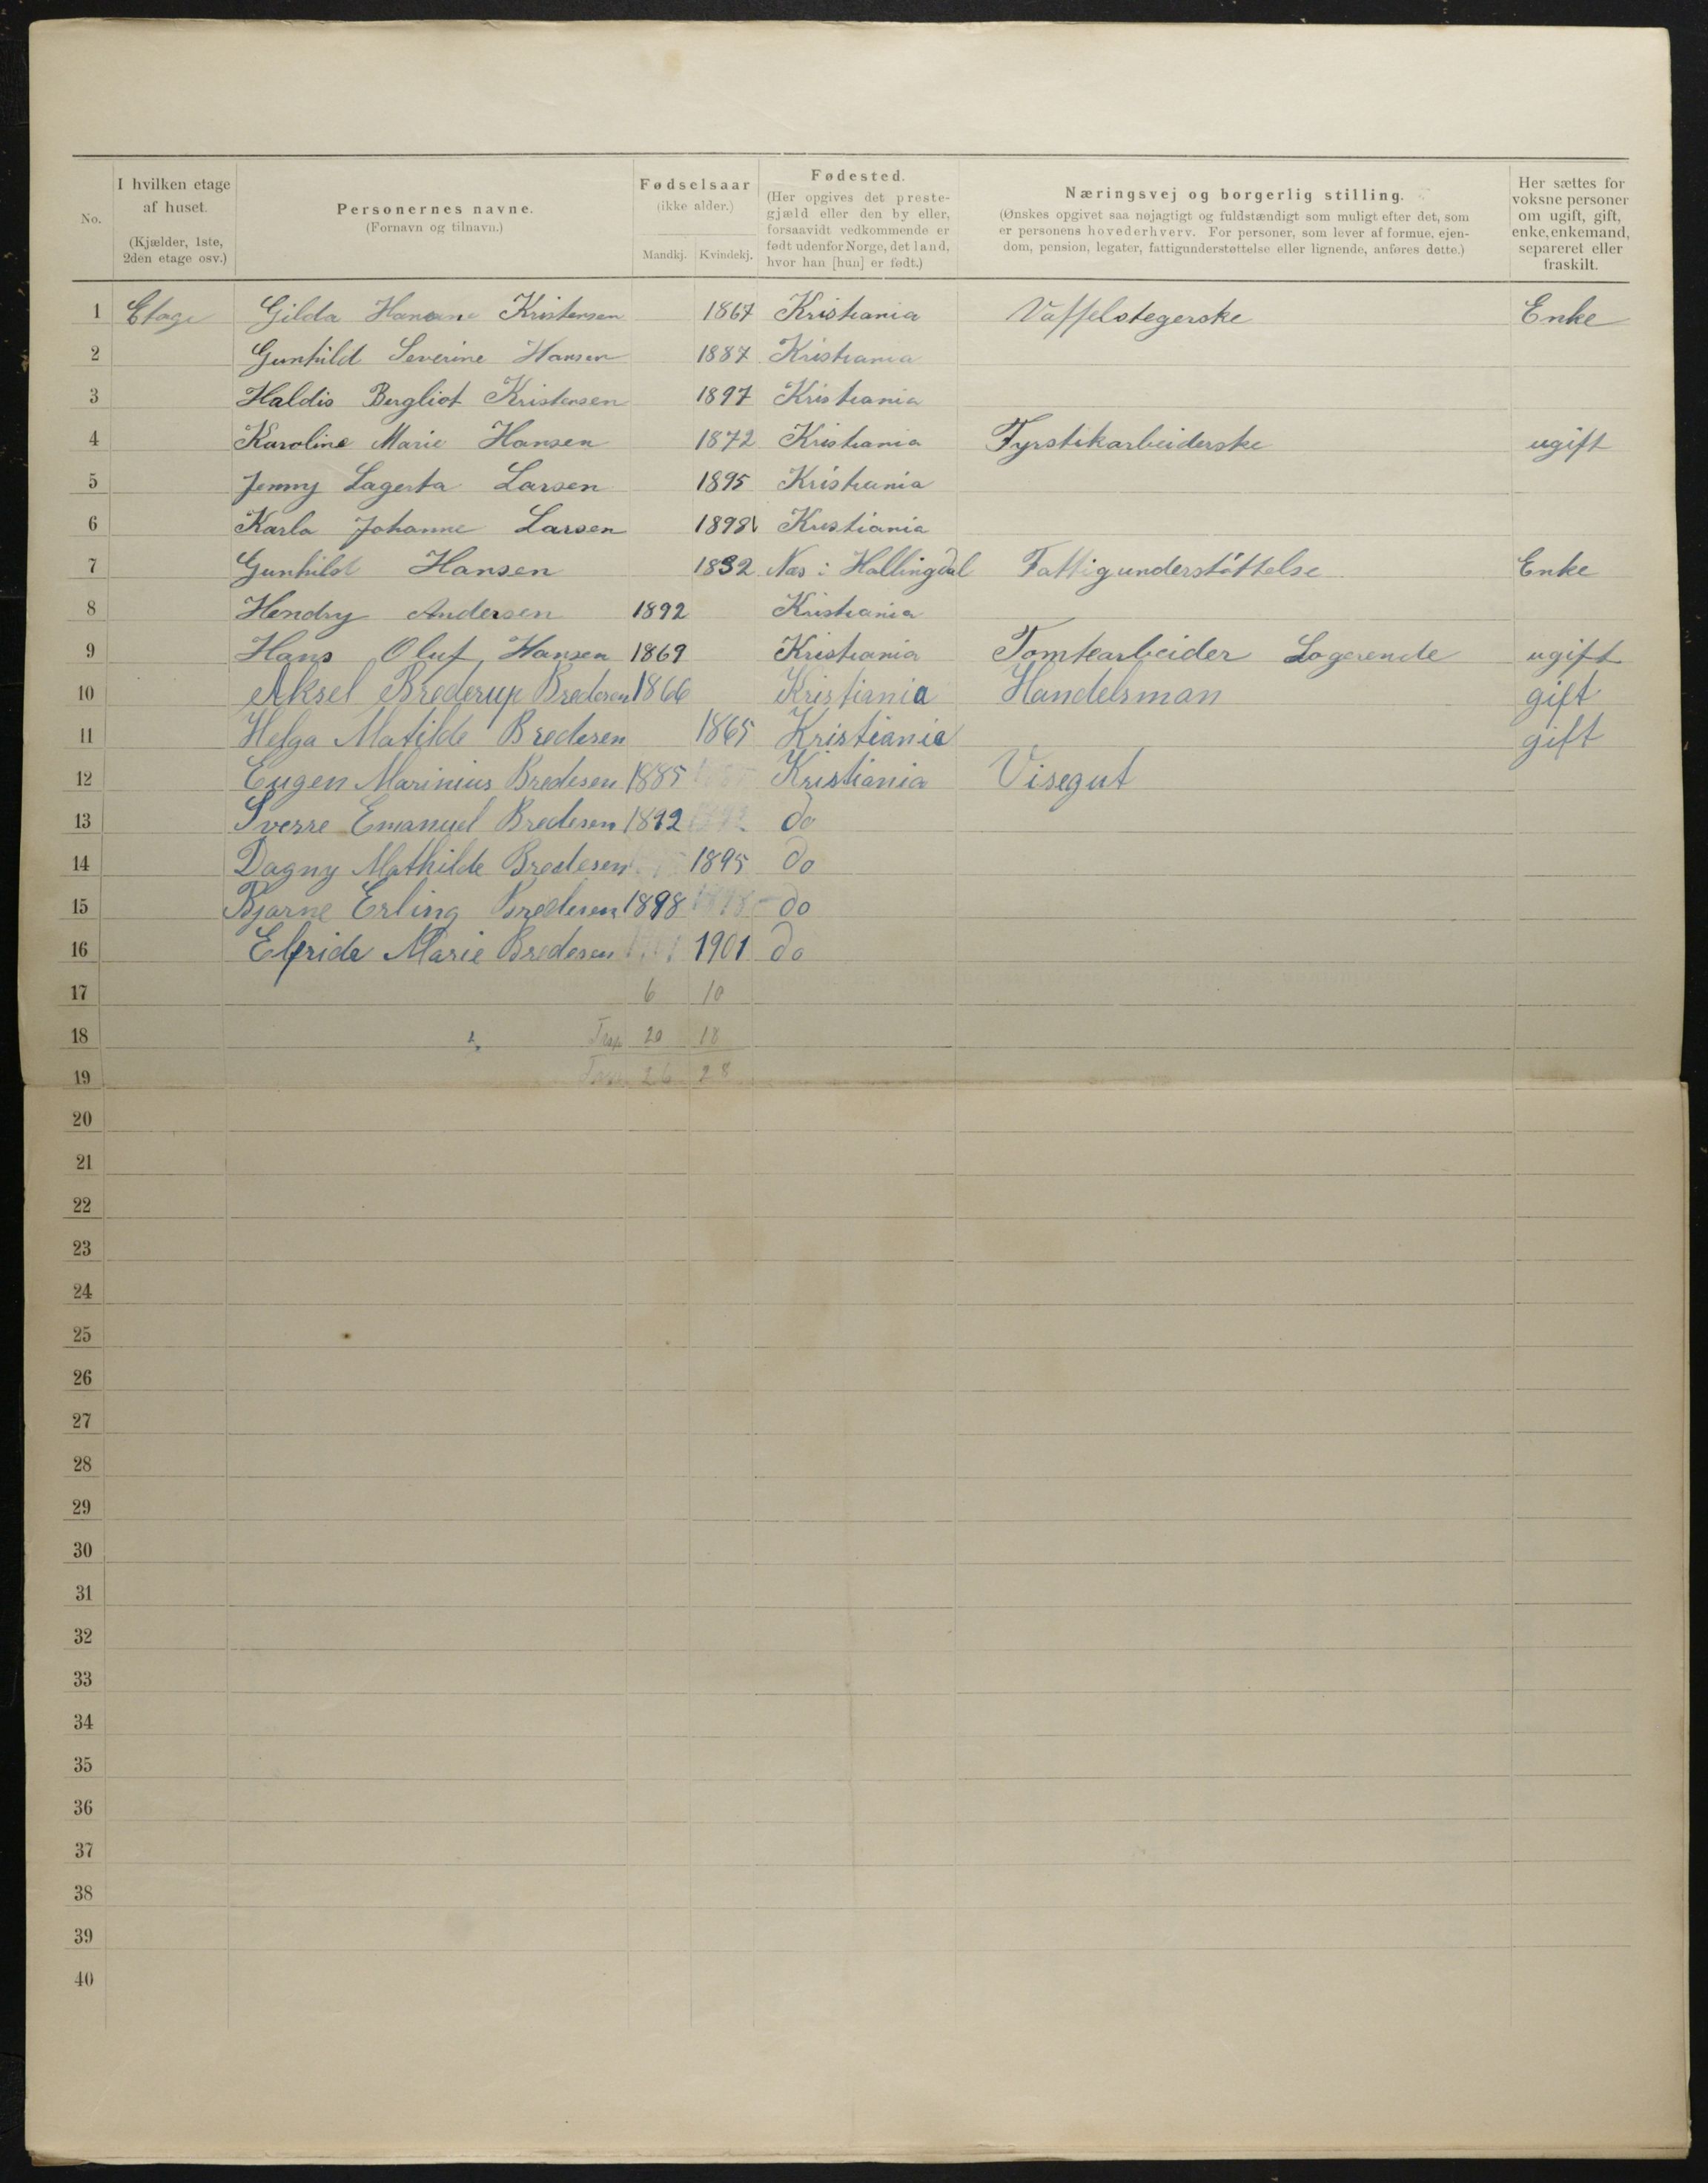 No.
I hvilken etage af huset.
(Kjælder, 1ste, 2den etage osv.)
Personernes navne.
(Fornavn og tilnavn.)
Fødselsaar
(ikke alder.)
Mandkj. Kvindekj.
Fødested.
(Her opgives det prestegjæld eller den by eller, forsaavidt vedkommende er født udenfor Norge, det land, hvor han [hun] er født.)
Næringsvej og borgerlig stilling.
(Ønskes opgivet saa nøjagtigt og fuldstændigt som muligt efter det, som er personens hovederhverv. For personer, som lever af formue, ejendom, pension, legater, fattigunderstøttelse eller lignende, anføres dette.)
Her sættes for voksne personer om ugift, gift, enke, enkemand, separeret eller fraskilt.
1 Etage Gilda Kristensen 1867 Kristiania Vaffelstegerske Enke
2 Gunhild Severine Hansen 1887 Kristiania
3 Haldis Bergliot Kristensen 1897 Kristiania
4 Karoline Marie Hansen 1872 Kristiania Fyrstikarbeiderske ugift
5 Jenny Lagerta Larsen 1895 Kristiania
6 Karla Johanne Larsen 1898 Kristiania
7 Gunhild Hansen 1832 Næs i Hallingdal Fattigunderstøttelse Enke
8 Hendry Andersen 1892 Kristiania
9 Hans Oluf Hansen 1869 Kristiania Tomtearbeider Logerende ugift
10 Aksel Brederup Bredesen 1866 Kristiania Handelsman gift
11 Helga Matilde Bredesen 1865 Kristiania gift
12 Eugen Marinius Bredesen 1885 Kristiania Visegut
13 Sverre Emanuel Bredesen 1892 do
14 Dagny Mathilde Bredesen 1895 do
15 Bjarne Erling Bredesen 1898 do
16 Elfride Marie Bredesen 1901 do
17 6 10
18 20 18
19 26 28
20
21
22
23
24
25
26
27
28
29
30
31
32
33
34
35
36
37
38
39
40